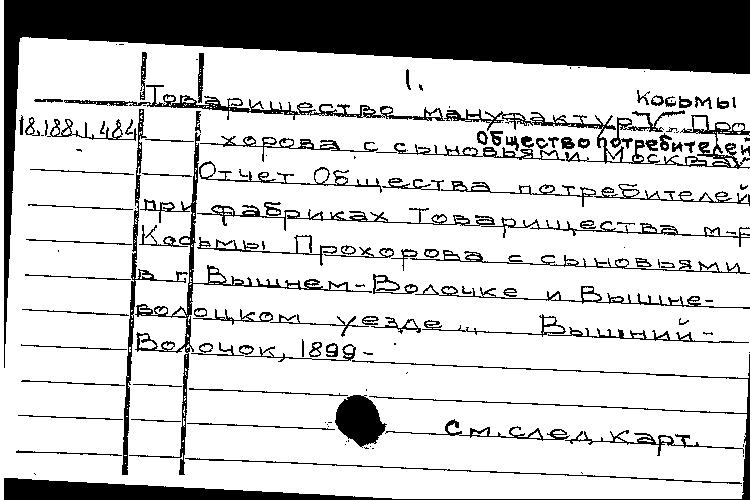 1.
Косьмы
Товарищество мануфактур V Про
18.188.1.484
Общество потребителей
хорова с сыновьями. Москва
Отчет Общества потребителей
при фабриках Товарищества м-р
Косьмы Прохорова с сыновьями
в г. Вышнем-Волочке и Вышне-
волоцком уезде ... Вышний-
Волочок, 1899-
См. след. карт.